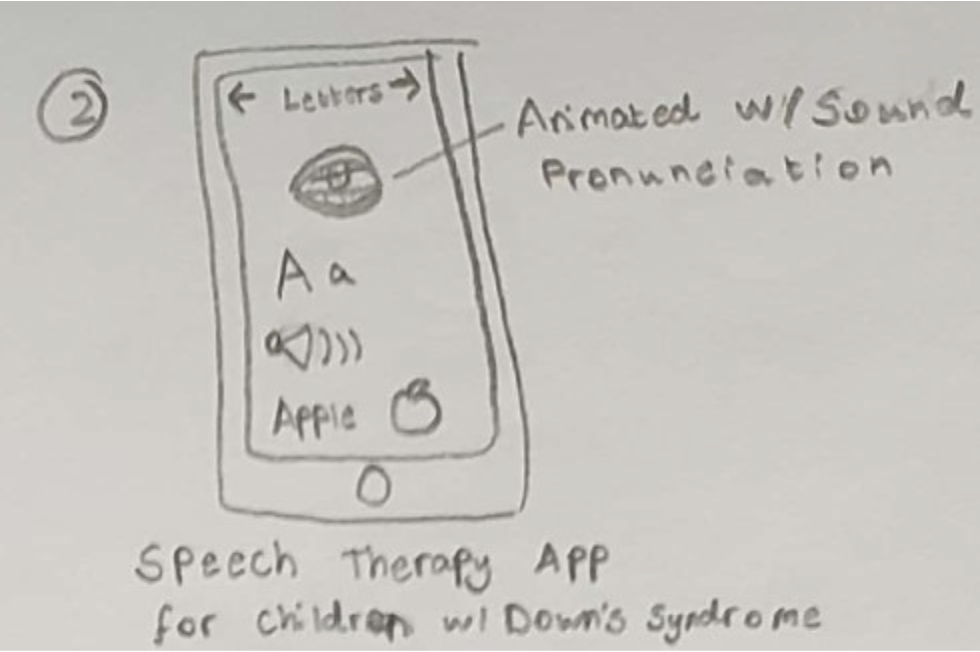 2
← Letters →
Animated w/ Sound
Pronunciation
A a
Apple
Speech Therapy App
for children w/ Down's Syndrome